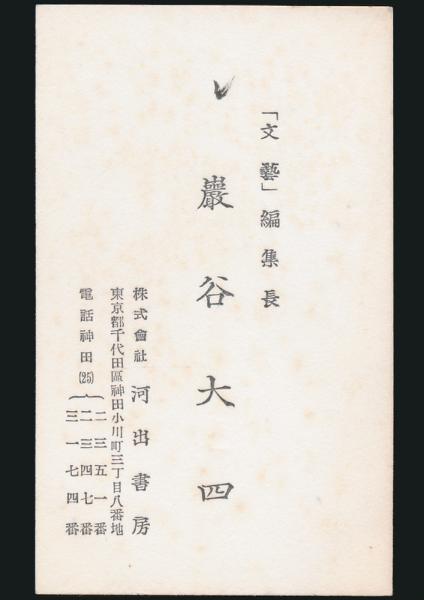 「文藝」編集長
巖谷大四
株式會社 河出書房
東京都千代田區神田小川町三丁目八番地
電話神田(25)
二三五一番
二三四七番
三一七四番